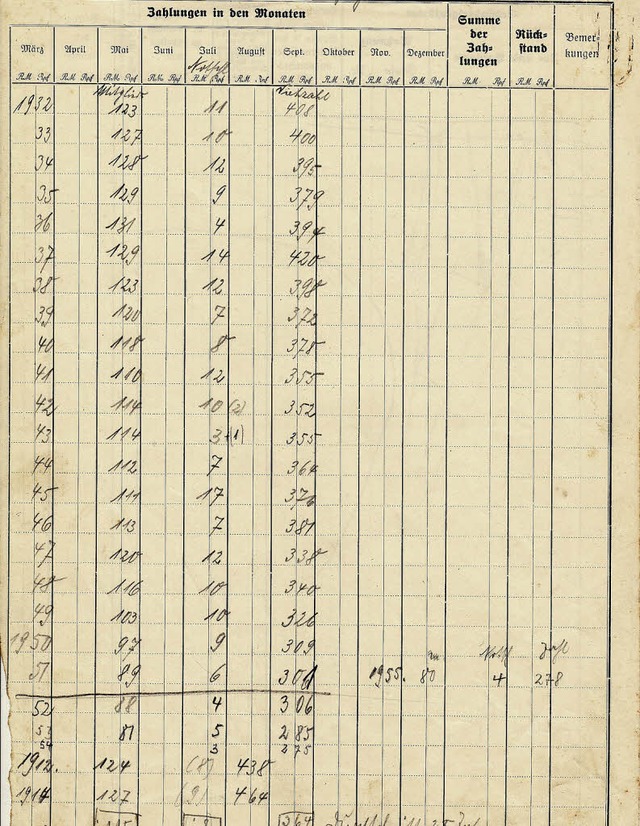 Zahlungen in den Monaten
März April Mai Juni Juli August Sept. Oktober Nov. Dezember Summe der Zahlungen Rückstand Bemerkungen
R.M. Rpf R.M. Rpf R.M. Rpf R.M. Rpf R.M. Rpf R.M. Rpf R.M. Rpf R.M. Rpf R.M. Rpf R.M. Rpf R.M. Rpf R.M. Rpf
Mitglied Viehzahl
1932 123 11 408
33 127 10 400
34 128 12 395
35 129 9 379
36 131 4 394
37 129 14 420
38 123 12 398
39 120 7 372
40 118 8 378
41 110 12 355
42 114 10 (2) 352
43 114 3+(1) 355
44 112 7 364
45 111 17 376
46 113 7 381
47 120 12 338
48 116 10 340
49 103 10 326
1950 97 9 309
51 89 6 301 1955. 80 4 278
52 88 4 306
53 81 5 285
54 3 275
1912. 124 (8) 438
1914 127 (9) 464